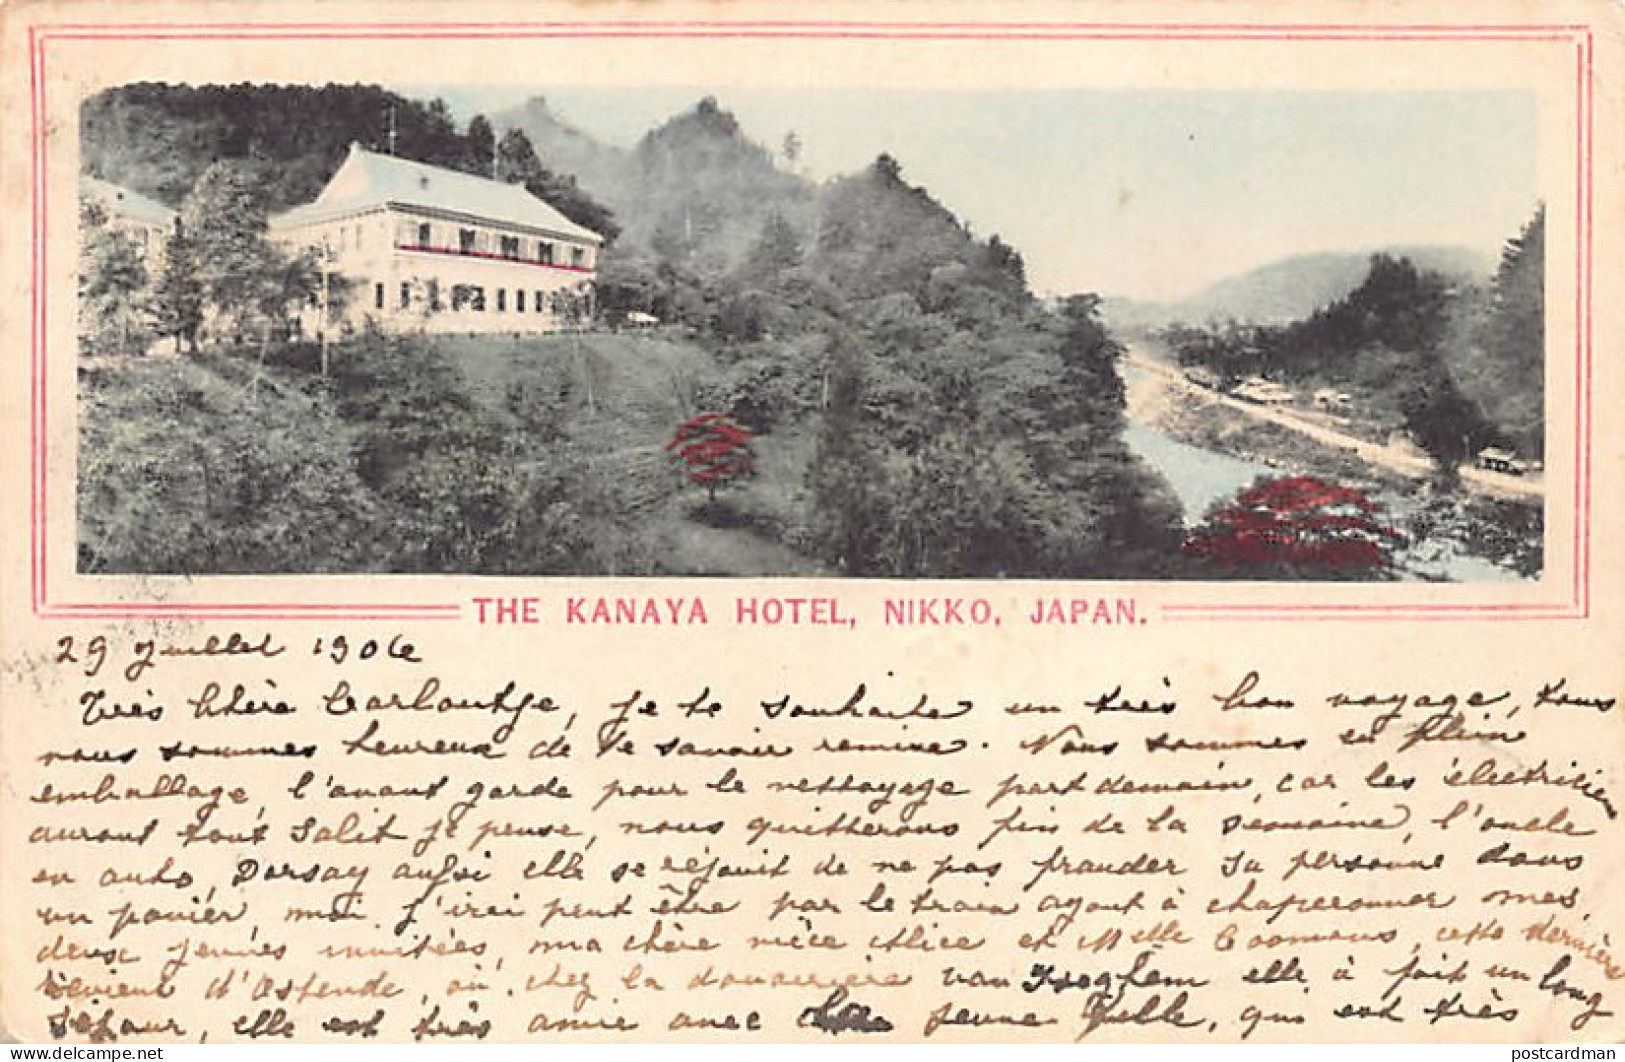 THE KANAYA HOTEL, NIKKO, JAPAN.
29 Juillet 1906
Très chère je te souhaite un très bon voyage, tous
nous sommes heureux de te savoir remise. Nous sommes en plein
emballage, l'avant garde pour le nettoyage part demain, car les électriciens
auront tout salit je pense, nous quitterons fin de la semaine, l'oncle
en auto, Dorsay aussi elle se réjouit de ne pas frauder sa personne dans
un panier, moi j'irai peut être par le train ayant à chaperonner mes
deux jeunes invitées, ma chère nièce Alice et Melle Coomans, cette dernière
revient d'Ostende, où chez la douairière van Iseghem elle à fait un long
séjour, elle est très amie avec la jeune fille, qui est très
postcardman
delcampe.net